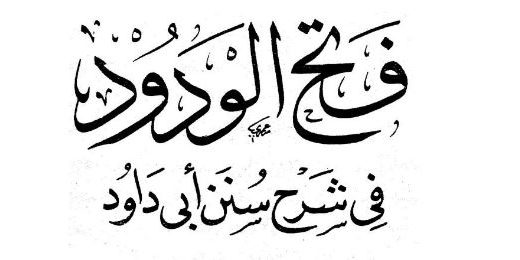 فَتْحُ الْوَدُودِ
فِي شَرْحِ سُنَنِ أَبِي دَاوُدَ